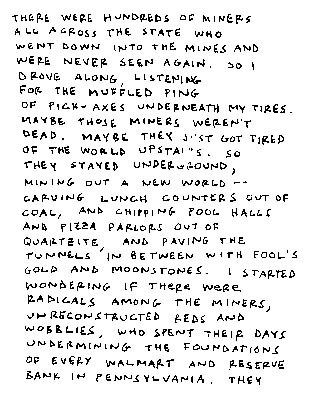 THERE WERE HUNDREDS OF MINERS
ALL ACROSS THE STATE WHO
WENT DOWN INTO THE MINES AND
WERE NEVER SEEN AGAIN. SO I
DROVE ALONG, LISTENING
FOR THE MUFFLED PING
OF PICK-AXES UNDERNEATH MY TIRES.
MAYBE THOSE MINERS WEREN'T
DEAD. MAYBE THEY JUST GOT TIRED
OF THE WORLD UPSTAIRS. SO
THEY STAYED UNDERGROUND,
MINING OUT A NEW WORLD --
CARVING LUNCH COUNTERS OUT OF
COAL, AND CHIPPING POOL HALLS
AND PIZZA PARLORS OUT OF
QUARTZITE, AND PAVING THE
TUNNELS IN BETWEEN WITH FOOL'S
GOLD AND MOONSTONES. I STARTED
WONDERING IF THERE WERE
RADICALS AMONG THE MINERS,
UNRECONSTRUCTED REDS AND
WOBBLIES, WHO SPENT THEIR DAYS
UNDERMINING THE FOUNDATIONS
OF EVERY WALMART AND RESERVE
BANK IN PENNSYLVANIA. THEY